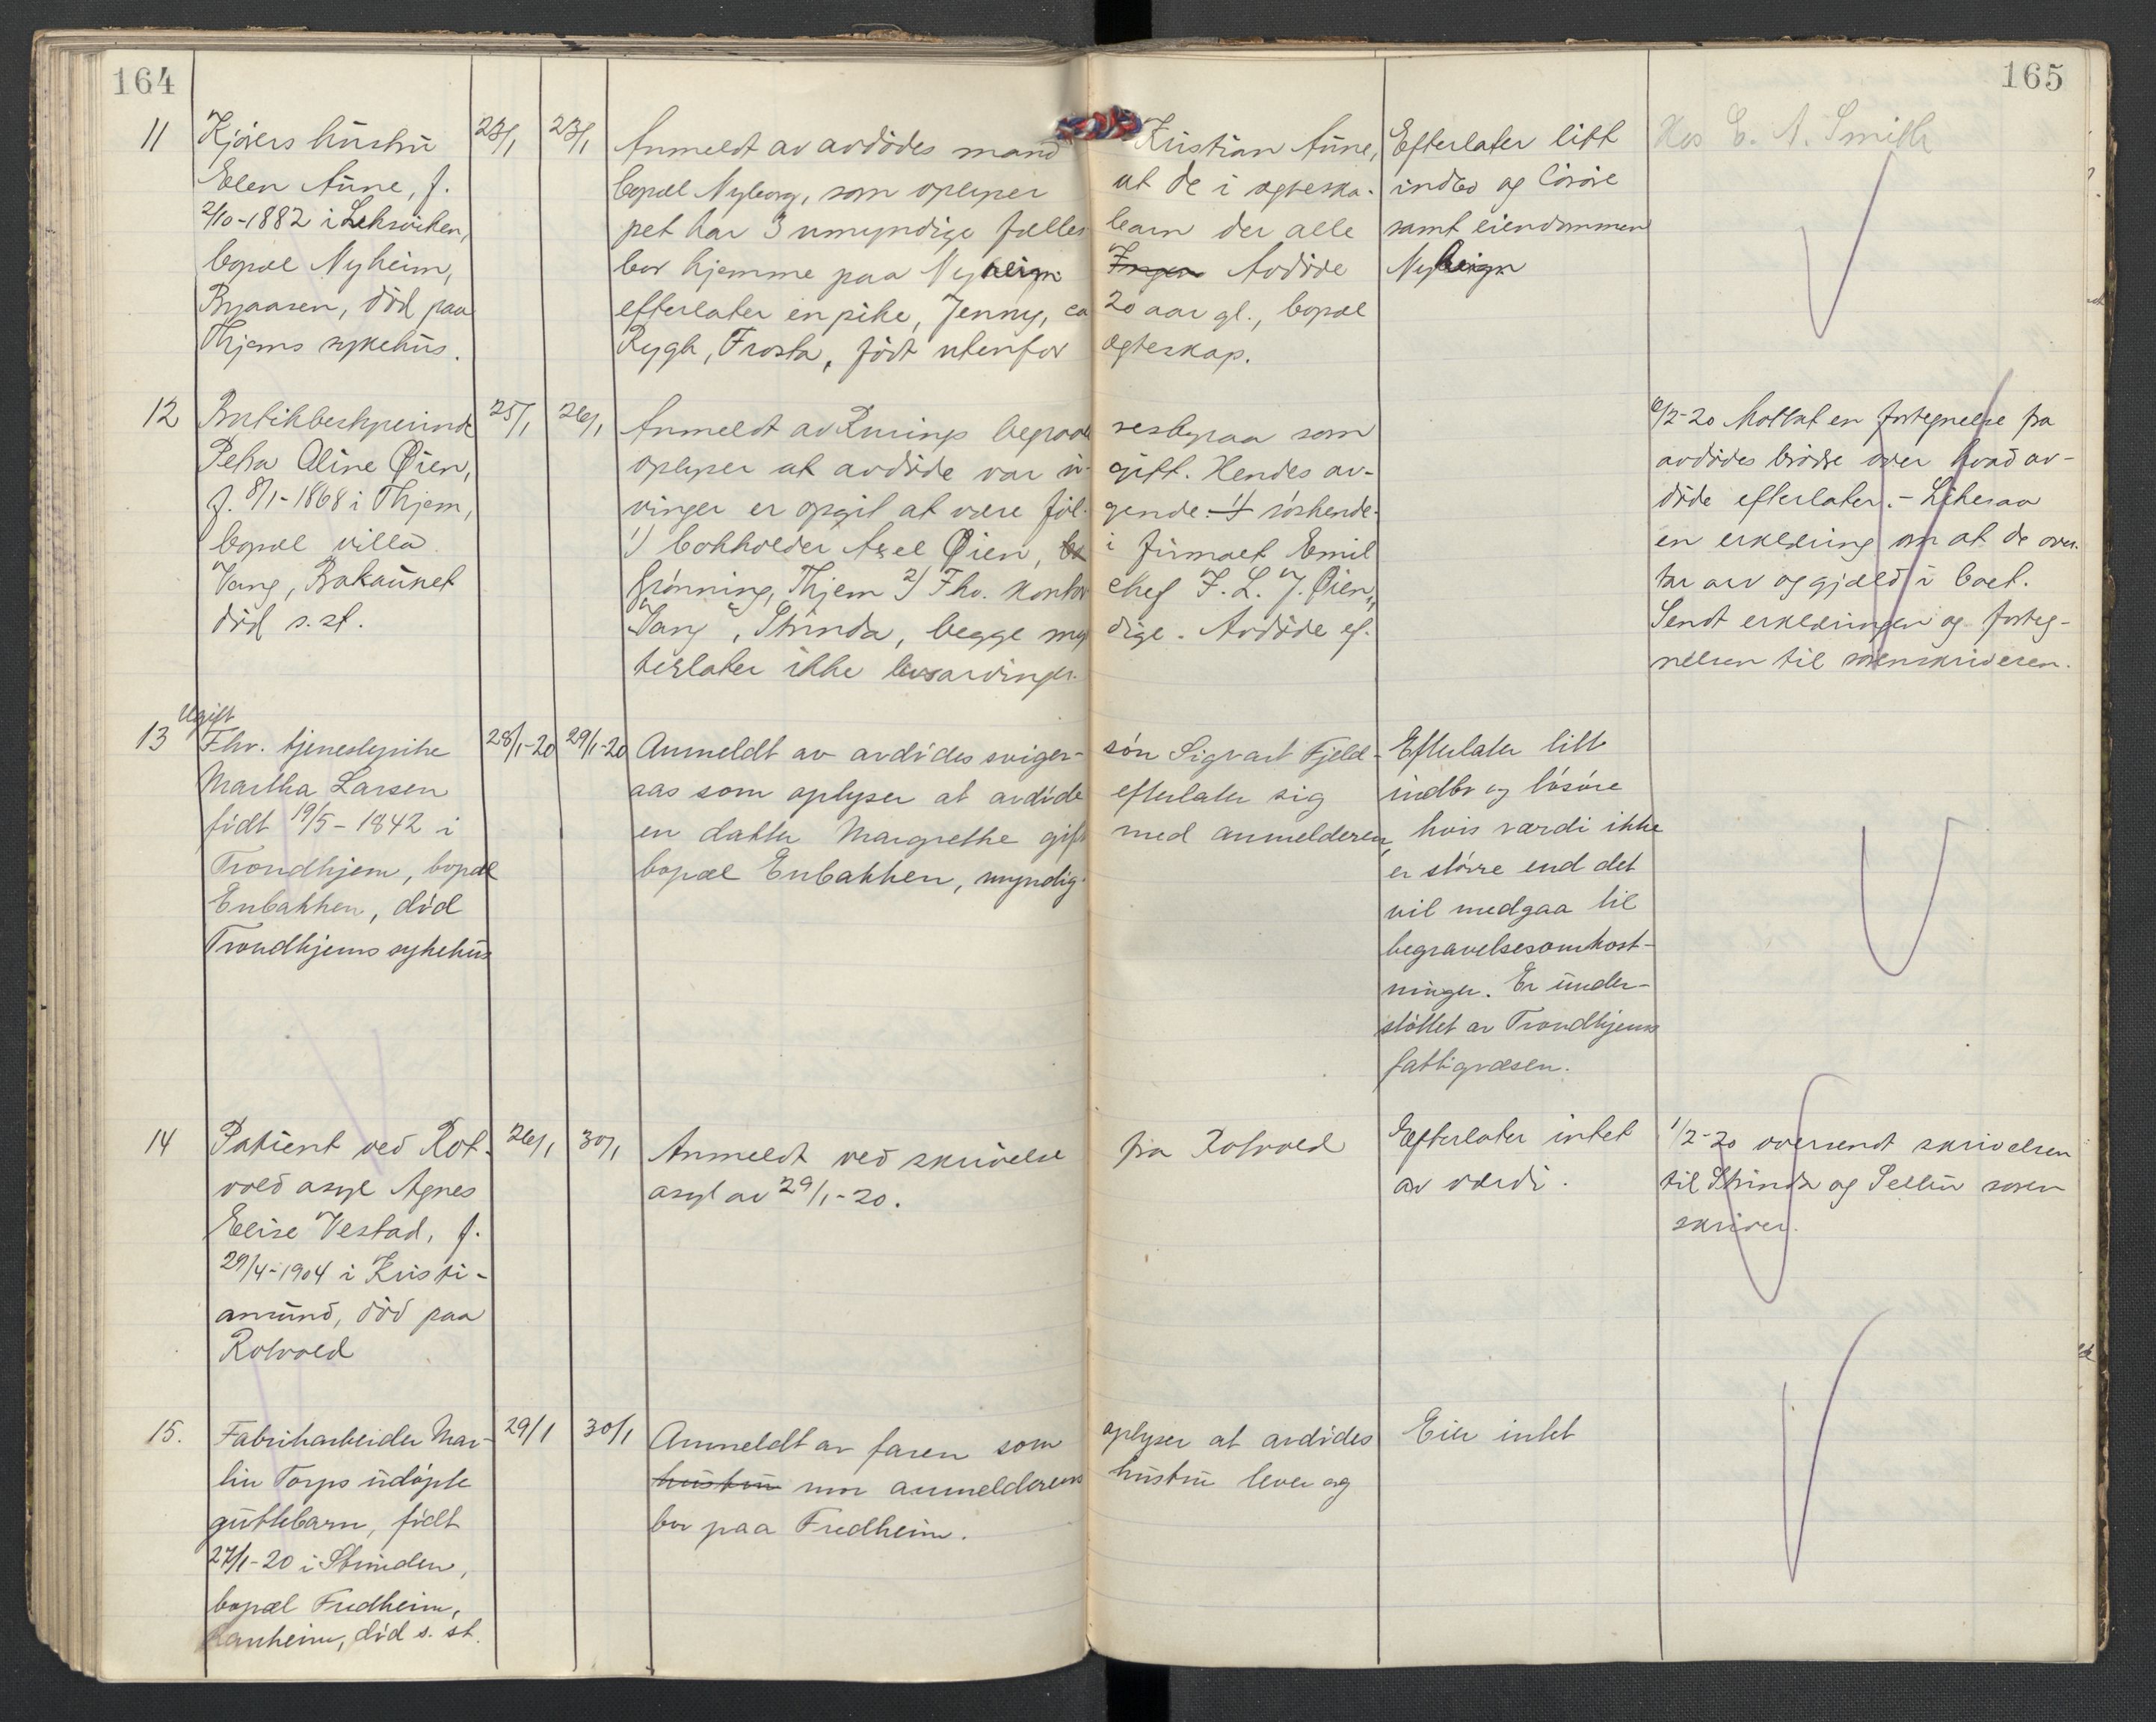 164
165
11
Kjørers hustru
Elen Aune, f.
2/10-1882 i Leksviken,
bopæl Nyheim,
Byaasen, död paa
Thjems sykehus.
23/1
23/1
Anmeldt av avdödes mand Kristian Aune,
bopæl Nyborg, som oplyser at de i ægteska-
pet har 3 umyndige fælles barn der alle
bor hjemme paa Nyheim Ingen Avdöde
efterlater en pike, Jenny, ca 20 aar gl., bopæl
Rygh, Frosta, født utenfor ægteskap.
Efterlater litt
indbo og lösöre
samt eiendommen
Nyheim
Hos E. A. Smith
12
Butikbestyrerinde
Petra Aline Øien,
f. 8/1-1868 i Thjem,
bopæl villa
Vang, Bakaunet
död s. st.
25/1
26/1
Anmeldt av Rusings begravelsesbyraa som
oplyser at avdöde var u- gift. Hendes ar-
vinger er opgit at være föl- gende: 4 söskende.
1) bokholder Axel Øien, i firmaet Emil
Grönning, Thjem 2) Fhv. kontor chef F. L. J. Øien,
"Vang", Strinda, begge myn dige. Avdöde ef-
terlater ikke livsarvinger.
6/2-20 Mottat en fortegnelse fra
avdödes brödre over hvad av-
döde efterlater. - Likesaa
en erklæring om at de over-
tar arv og gjæld i boet.
Sendt erklæringen og forteg-
nelsen til sorenskriveren.
13
Ugift
Fhv. tjenestepike
Martha Larsen
født 19/5-1842 i
Trondhjem, bopæl
Enbakken, död
Trondhjems sykehus
28/1-20
29/1-20
Anmeldt av avdödes sviger- søn Sigvart Fjeld-
aas som oplyser at avdöde efterlater sig
en datter Margrethe gift med anmelderen,
bopæl Enbakken, myndig.
Efterlater litt
indbo og lösöre
hvis værdi ikke
er större end det
vil medgaa til
begravelsesomkost-
ninger. Er under-
stöttet av Trondhjems
fattigvæsen.
14
Patient ved Rot-
vold asyl Agnes
Elise Vestad, f.
29/4-1904 i Kristi-
ansund, död paa
Rotvold
26/1
30/1
Anmeldt ved skrivelse fra Rotvold
asyl av 29/1-20.
Efterlater intet
av værdi.
1/2-20 oversendt skrivelsen
til Strinda og Selbu soren
skriver.
15.
Fabrikarbeider Mar-
tin Torps udöpte
guttebarn, født
27/1-20 i Strinden,
bopæl Fredheim,
Ranheim, död s. st.
29/1
30/1
Anmeldt av faren som oplyser at avdödes
hustru mor anmelderens hustru lever og
bor paa Fredheim.
Eier intet